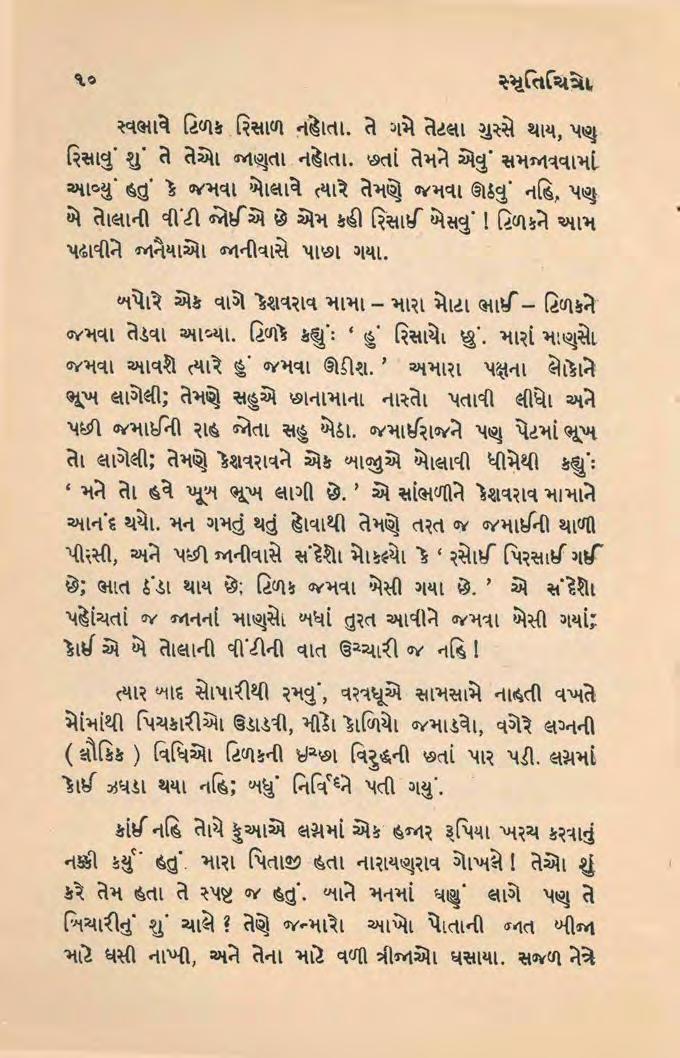 ૧૦
સ્મૃતિચિત્રો
સ્વભાવે ટિળક રિસાળ નહોતા. તે ગમે તેટલા ગુસ્સે થાય, પણ
રિસાવું શું તે તેઓ જાણતા નહોતા. છતાં તેમને એવું સમજાવવામાં
આવ્યું હતું કે જમવા બોલાવે ત્યારે તેમણે જમવા ઊઠવું નહિ, પણ
બે તોલાની વીંટી જોઈએ છે એમ કહી રિસાઈ બેસવું ! ટિળકને આમ
પઢાવીને જાનૈયાઓ જાનીવાસે પાછા ગયા.
બપોરે એક વાગે કેશવરાવ મામા – મારા મોટા ભાઈ – ટિળકને
જમવા તેડવા આવ્યા. ટિળકે કહ્યું: ‘ હું રિસાયો છું. મારાં માણસો
જમવા આવશે ત્યારે હું જમવા ઊઠીશ. ’ અમારા પક્ષના લોકોને
ભૂખ લાગેલી; તેમણે સહુએ છાનામાના નાસ્તો પતાવી લીધો અને
પછી જમાઈની રાહ જોતા સહુ બેઠા. જમાઈરાજને પણ પેટમાં ભૂખ
તો લાગેલી; તેમણે કેશવરાવને એક બાજુએ બોલાવી ધીમેથી કહ્યું:
‘ મને તો હવે ખૂબ ભૂખ લાગી છે. ’ એ સાંભળીને કેશવરાવ મામાને
આનંદ થયો. મન ગમતું થતું હોવાથી તેમણે તરત જ જમાઈની થાળી
પીરસી, અને પછી જાનીવાસે સંદેશો મોકલ્યો કે ‘ રસોઈ પિરસાઈ ગઈ
છે; ભાત ઠંડા થાય છે; ટિળક જમવા બેસી ગયા છે. ’ એ સંદેશો
પહોંચતાં જ જાનનાં માણસો બધાં તુરત આવીને જમવા બેસી ગયાં;
કોઈ એ બે તોલાની વીંટીની વાત ઉચ્ચારી જ નહિ !
ત્યાર બાદ સોપારીથી રમવું, વરવધૂએ સામસામે નાહતી વખતે
મોંમાંથી પિચકારીઓ ઉડાડવી, મીઠો કોળિયો જમાડવો, વગેરે લગ્નની
( લૌકિક ) વિધિઓ ટિળકની ઈચ્છા વિરુદ્ધની છતાં પાર પડી. લગ્નમાં
કોઈ ઝઘડા થયા નહિ; બધું નિર્વિઘ્ને પતી ગયું.
કાંઈ નહિ તોયે ફુઆએ લગ્નમાં એક હજાર રૂપિયા ખરચ કરવાનું
નક્કી કર્યું હતું. મારા પિતાજી હતા નારાયણરાવ ગોખલે ! તેઓ શું
કરે તેમ હતા તે સ્પષ્ટ જ હતું. બાને મનમાં ઘણું લાગે પણ તે
બિચારીનું શું ચાલે ? તેણે જન્મારો આખો પોતાની જાત બીજા
માટે ઘસી નાખી, અને તેના માટે વળી ત્રીજાઓ ઘસાયા. સજળ નેત્રે